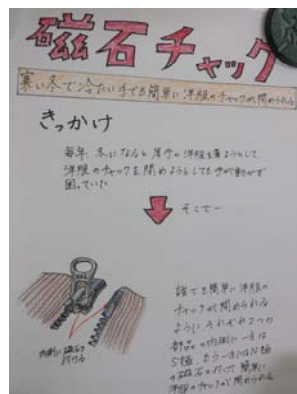 磁石チャック
寒い冬で冷たい手でも簡単に洋服のチャックが閉められる
きっかけ
毎年、冬になると厚手の洋服を着ようとして
洋服のチャックを閉めようとしても手が動かず
困っていた
そこで―
誰でも簡単に洋服の
チャックが閉められる
ように、それぞれ2つの
部品の内側に一方は
S極、もう一方にはN極
の磁石を付けて、簡単に
洋服のチャックが閉められる
内側に磁石を
付ける